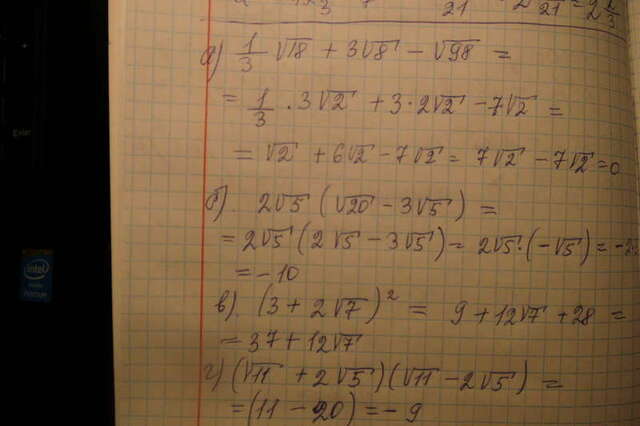 а) 1/3 √18 + 3√8 − √98 =
= 1/3 · 3√2 + 3 · 2√2 − 7√2 =
= √2 + 6√2 − 7√2 = 7√2 − 7√2 = 0
б). 2√5 (√20 − 3√5) =
= 2√5 (2√5 − 3√5) = 2√5 · (−√5) =
= −10
в). (3 + 2√7)² = 9 + 12√7 + 28 =
= 37 + 12√7
г) (√11 + 2√5)(√11 − 2√5) =
= (11 − 20) = −9
intel